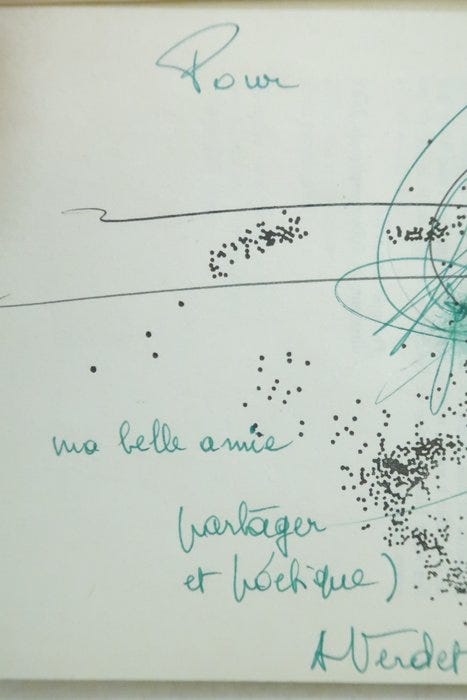 Pour
ma belle amie
partager
et poétique)
A Verdet